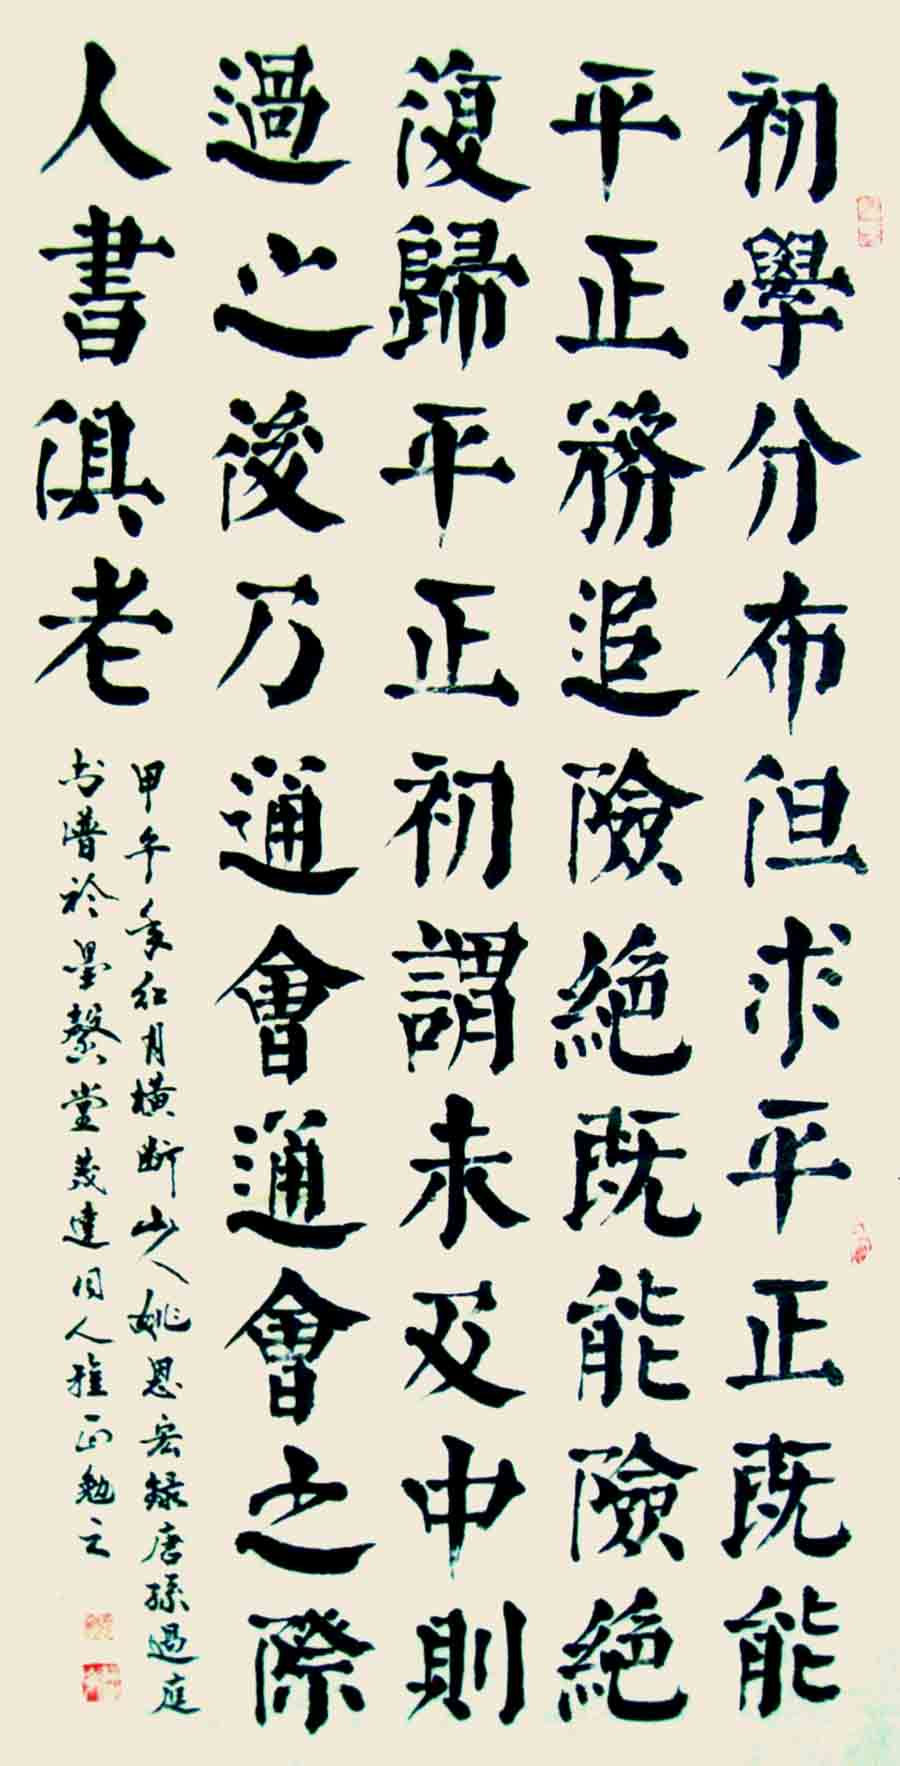 初學分布但求平正既能
平正務追險絕既能險絕
復歸平正初謂未及中則
過之後乃通會通會之際
人書俱老
甲午年红月橫断山人姚恩宏録唐孫過庭
书谱於墨馨堂茂達同人雅正勉之